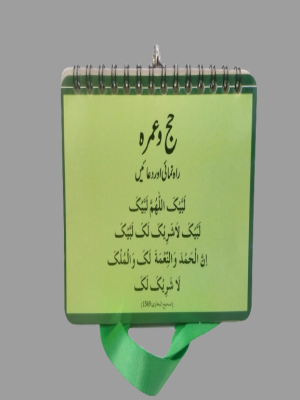 حج و عمرہ
راہ نمائی اور دعائیں
لَبَّیْکَ اَللّٰھُمَّ لَبَّیْکَ
لَبَّیْکَ لَاشَرِیْکَ لَکَ لَبَّیْکَ
اِنَّ الْحَمْدَ وَالنِّعْمَۃَ لَکَ وَالْمُلْکَ
لَا شَرِیْکَ لَکَ
(صحیح البخاری:1549)